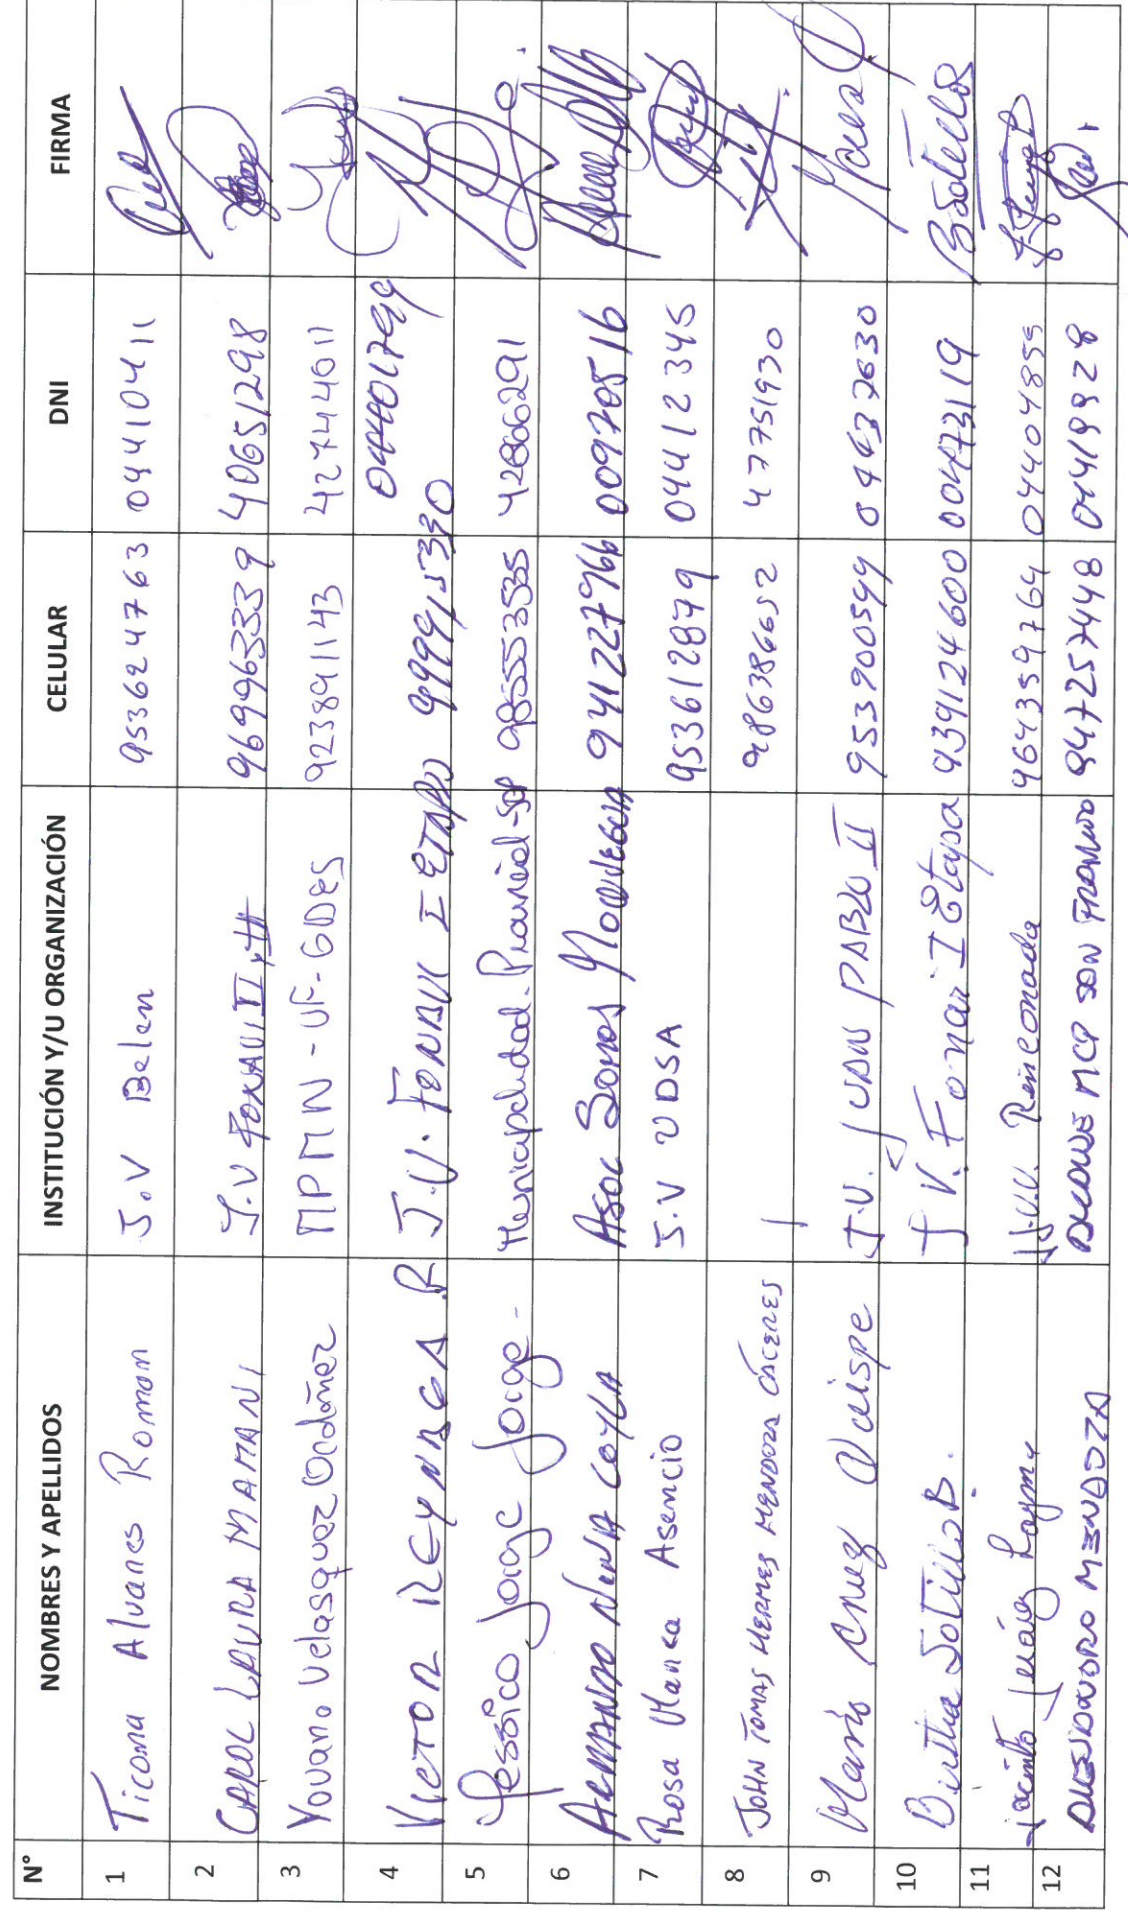 N° NOMBRES Y APELLIDOS INSTITUCIÓN Y/U ORGANIZACIÓN CELULAR DNI FIRMA
1 Ticona Alvares Roman J.V Belen 953624763 04410411
2 CAROL LAURA MAMANI J.V FONAVI II 969963339 40651298
3 Yovano Velasquez Ordoñez MPMN-UF-GDES 923891143 42744011
4 VICTOR REYNAGA R J.V. FONAVI I ETAPA 999915330 04401799
5 Yessica Jorge Jorge Municipalidad Provincial 985553535
6 ARMANDO NINA COYLA ASOC SOMOS MOQUEGUA 941227966 00970516
7 Rosa Manca Asencio J.V VDSA 953612879 04412345
8 JOHN TOMAS HERMES MENDOZA CACERES 986386652 47751930
9 Mario Cruz Quispe J.V. JUAN PABLO II 953900599 04437630 Mario
10 Birtha Sotillo B. J V. Fonavi I Etapa 939124600 00473119 BSotillo
11 Jacinto Juárez Layme JJ.VV. Rinconada 964359764 04404855
12 MENDOZA MCP SAN FRANCISCO 947257448 04419928